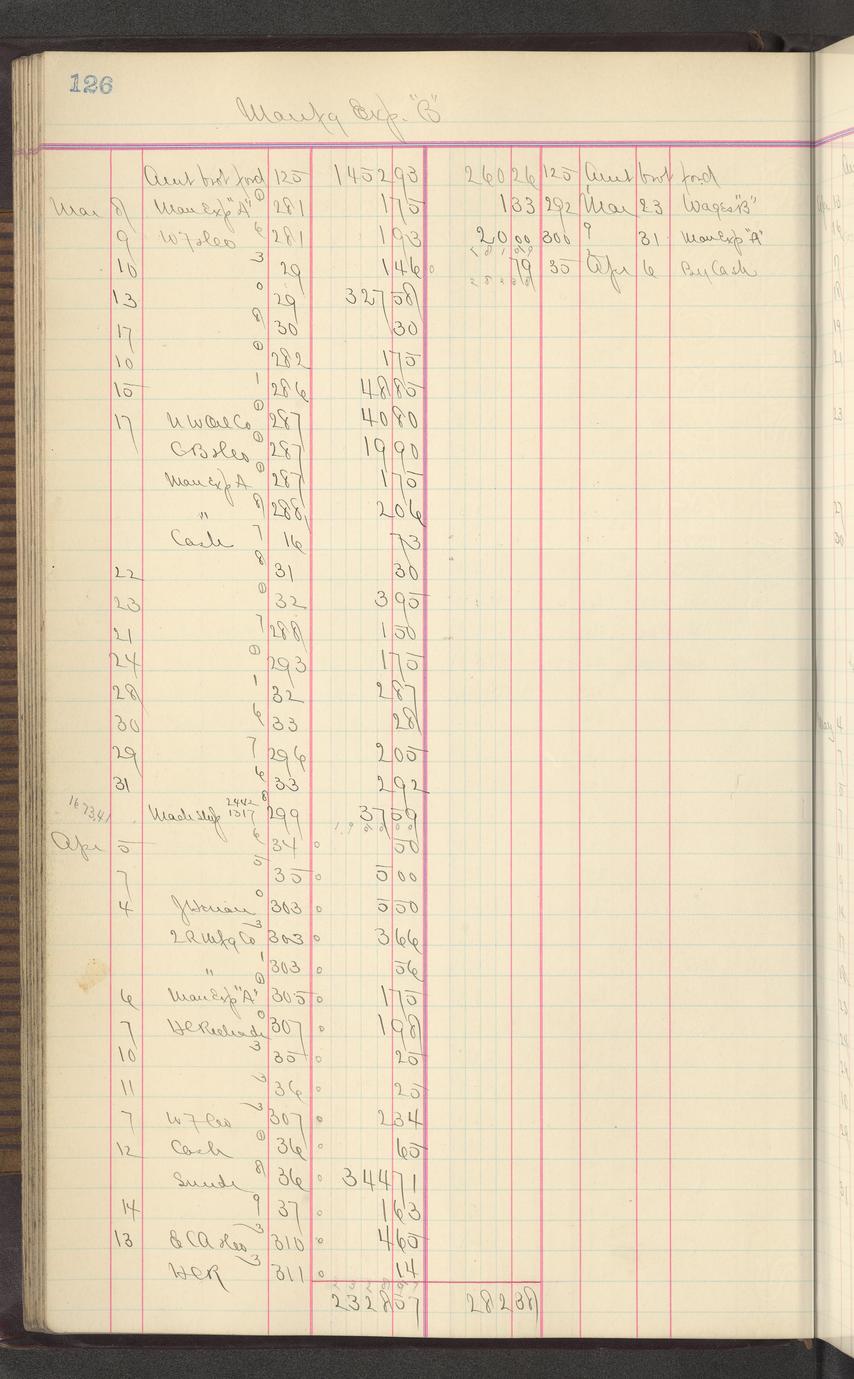 126
Manfg Exp. "B"
Amt brot ford 125 1452 93 260 26 125 Amt brot ford
Mar 8 Man Exp "A" 281 1 75 1 33 292 Mar 23 Wages "B"
9 W F & Co 6 281 1 93 20 00 300 9 31 Man Exp "A"
10 3 29 1 46 79 35 Apr 6 By Cash
13 0 29 327 58
17 8 30 30
10 0 282 1 75
15 1 286 48 85
17 N W Oil Co 0 287 40 80
C B & Co 0 287 19 90
Man Exp A 0 287 1 75
" 8 288 2 06
Cash 7 16 73
22 8 31 30
23 0 32 3 95
21 7 288 1 50
24 0 293 1 75
28 1 32 2 87
30 6 33 28
29 7 296 2 05
31 6 33 2 92
1673.41 Mach Shop 2442 1317 8 299 37 59
Apr 5 6 34 50
7 5 35 5 00
4 0 303 5 50
L R Mfg Co 3 303 3 66
" 1 303 56
6 Man Exp "A" 0 305 1 75
7 0 307 1 98
10 3 35 25
11 3 36 25
7 W F & Co 3 307 2 34
12 Cash 0 36 65
Sunds 8 36 344 71
14 9 37 1 63
13 E C A & Co 3 310 4 65
H C R 3 311 14
2328 57 282 38